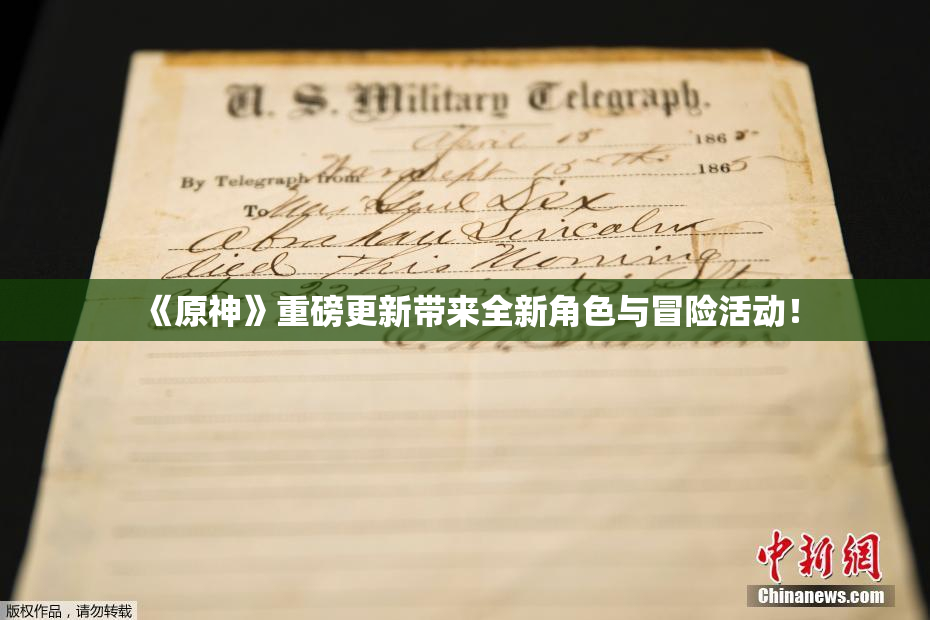 U. S. Military Telegraph.
April 15 1865
By Telegraph from War Dept 15th 1865
To Maj Genl Dix
Abraham Lincoln
died this Morning
at 22 minutes after
《原神》重磅更新带来全新角色与冒险活动！
中新网
Chinanews.com
版权作品，请勿转载